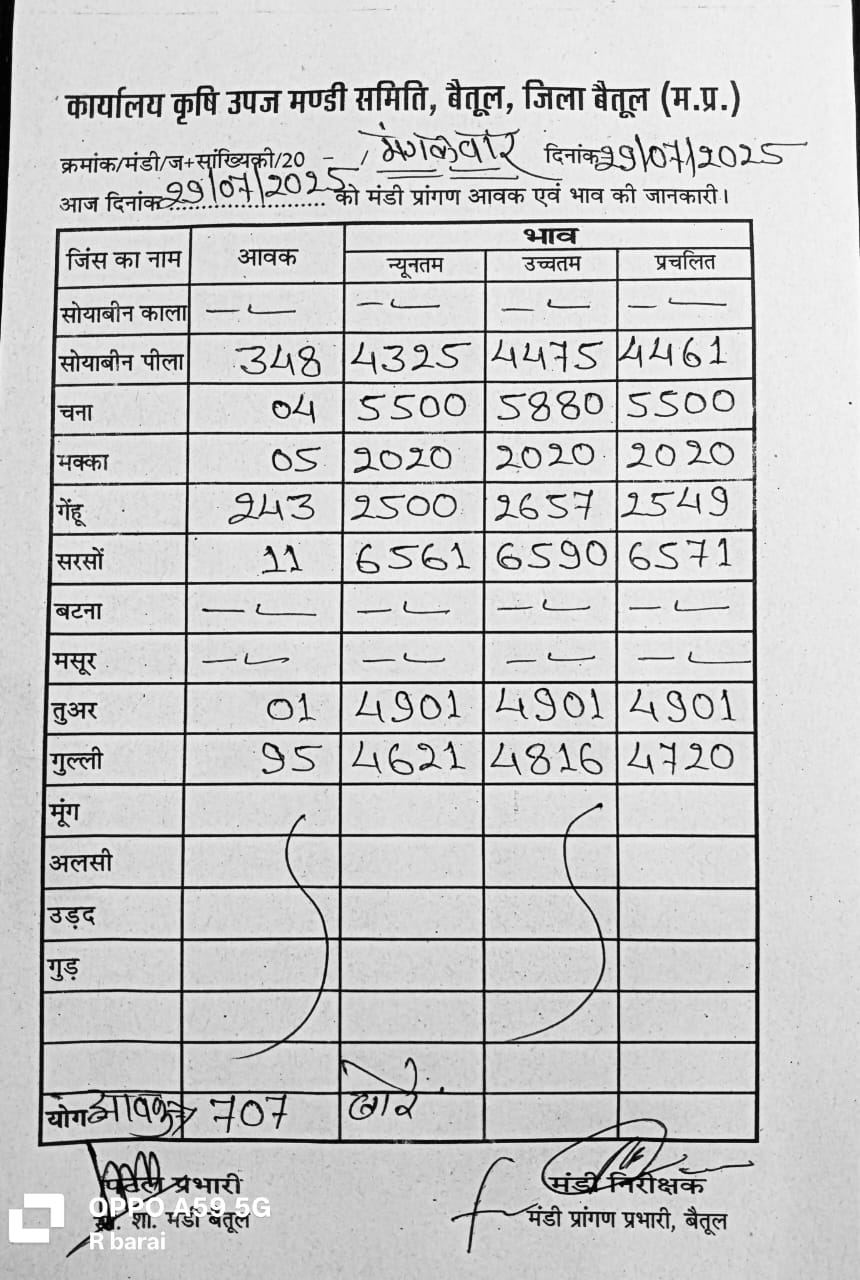 कार्यालय कृषि उपज मण्डी समिति, बैतूल, जिला बैतूल (म.प्र.)
क्रमांक/मंडी/ज+सांख्यिकी/20 - / मंगलवार दिनांक 29/07/2025
आज दिनांक 29/07/2025 को मंडी प्रांगण आवक एवं भाव की जानकारी।
जिंस का नाम आवक भाव
न्यूनतम उच्चतम प्रचलित
सोयाबीन काला — — — —
सोयाबीन पीला 348 4325 4475 4461
चना 04 5500 5880 5500
मक्का 05 2020 2020 2020
गेंहू 243 2500 2657 2549
सरसों 11 6561 6590 6571
बटना — — — —
मसूर — — — —
तुअर 01 4901 4901 4901
गुल्ली 95 4621 4816 4720
मूंग
अलसी
उड़द
गुड़
योग आवक 707 बोरे
प्रभारी मंडी निरीक्षक
शा. मंडी बैतूल मंडी प्रांगण प्रभारी, बैतूल
OPPO A59 5G
R barai